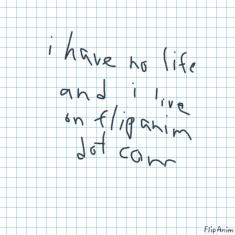 i have no life
and i live
on flipanim
dot com
FlipAnim